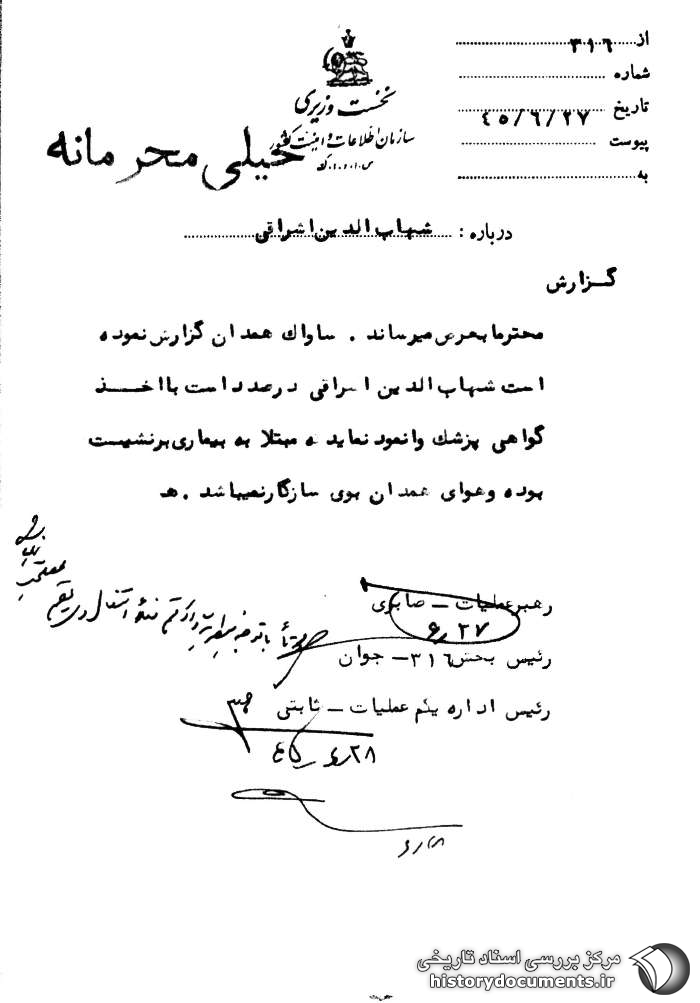 از ۳۱۶
شماره
تاریخ ۴۵/۶/۲۷
پیوست
به
نخست وزیری
سازمان اطلاعات و امنیت کشور
س.ا.و.ا.ک
خیلی محرمانه
درباره : شهاب الدین اشراقی
گزارش
محترما بعرض میرساند . ساواک همدان گزارش نموده
است شهاب الدین اشراقی درصدد است با اخذ
گواهی پزشک وانمود نماید ه مبتلا به بیماری برنشیست
بوده وهوای همدان بوی سازگارنمیباشد .ه
رهبرعملیات – صابری
۶٫۲۷
رئیس بخش ۳۱۶ – جوان
رئیس اداره یکم عملیات – ثابتی
۴۵٫۶٫۲۸
مرکز بررسی اسناد تاریخی
historydocuments.ir